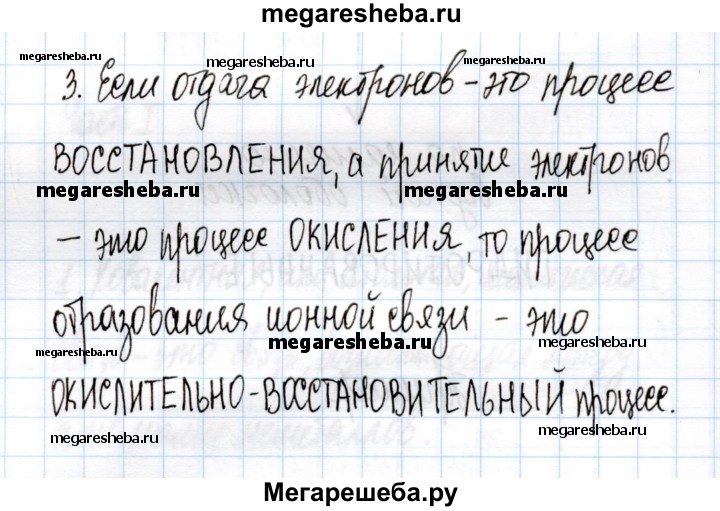 megaresheba.ru
megaresheba.ru megaresheba.ru megaresheba.ru
3. Если отдача электронов – это процесс
ВОССТАНОВЛЕНИЯ, а принятие электронов
megaresheba.ru megaresheba.ru
– это процесс ОКИСЛЕНИЯ, то процесс
отразования ионной связи – это
megaresheba.ru megaresheba.ru megaresheba.ru
ОКИСЛИТЕЛЬНО-ВОССТАНОВИТЕЛЬНЫЙ процесс.
megaresheba.ru megaresheba.ru megaresheba.ru
Мегарешеба.ру